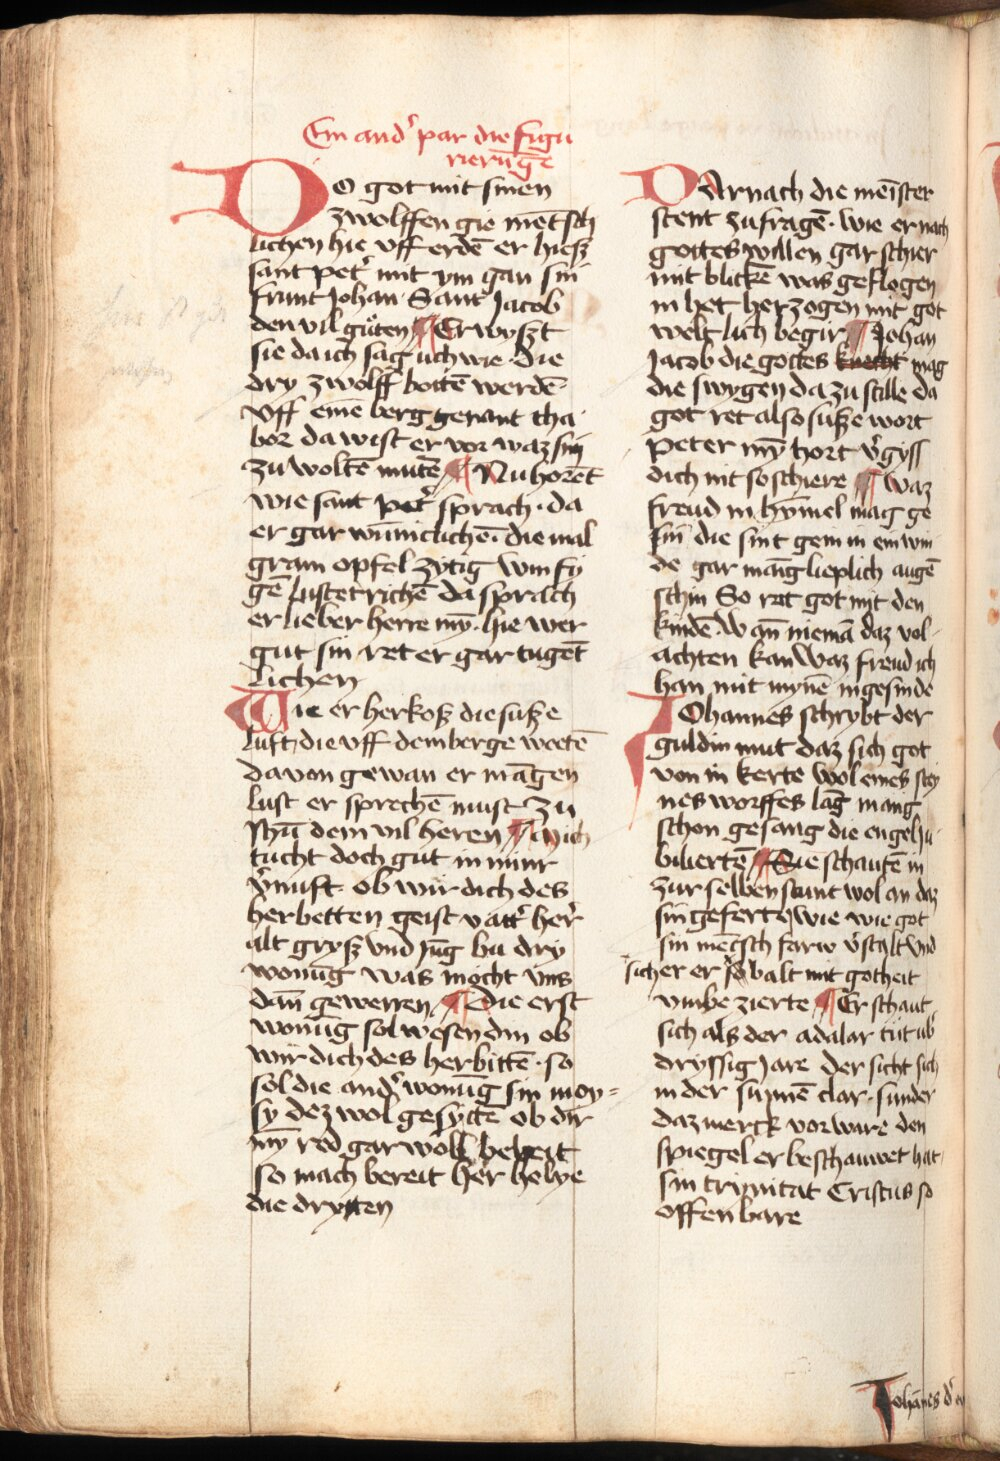 Ein and̛ par die figu
rierūge
DO got mit sinen
zwolffen gie mētsch
lichen hie vff erdē er hiesz
sant pet̛ mit ym gan sin
frunt Johan · Sant Jacob
den vil guten ¶ Er wyszt
sie da ich sag uch wie · die
dry zwolff bottē werdē
vff eine berg genant tha
bor da wist er vor waz sin
zu woltē mutē ¶ Nu horēt
wie sant pet̛ sprach · da
er gar wūniclichē · die mal
gram opfel zytig win fy
gē lustetrichē da sprach
er lieber herre my̅ · hie wer
gut sin ret er gar tugēt
lichen
Wie er herkosz die susze
luft die vff dem berge weetē
da von gewan er māgen
lust er sprechē must zu
Jhū dem vil heren ¶ Mich
tucht doch gut in miner
v̛nuft · ob wir dich des
herbetten geist vatt̛ her̛
alt grysz vnd jūg bu dry
wonūg was mocht vns
dan̄ gewerren ¶ Die erst
wonūg sol wesen din ob
wir dich des herbittē · so
sol die and̛ wonūg sin moy=
sy dez wol gesyttē ob dir
my̅ red gar woll beheit
so mach bereit her helye
die drytten
DArnach die meīster
stent zu fragē · wie er nach
gottes willen gar schier
mit blickē was geflogen
in het herzogen mit got
welt lich begir ¶ Johan
Jacob die gottes knecht mag
die swygen da zu stille da
got ret also susze wort
peter my̅ hort v̛gyss
dich nit so schiere ¶ Waz
freud in hy̅mel mag ge
sin die sint gein in ein win
de gar māg lieplich augē
schin So ret got mit den
kindē · Wan̄ niemā daz vol
achten kan Waz freud ich
han mit mynē ingesinde
JOhannes schrybt der
guldin mut daz sich got
von in kerte wol eines stey
nes worffes lāg manig
schon gesang die engel ju
biliertē ¶ Sie schautē in
zur selben stunt wol an daz
sin geferte wie wie got
sin mētsch farw v̛stalt vnd
sicher er so balt mit gotheit
vmbe zierte ¶ Er schaut
sich als der adalar tut ub̛
dryssig jare der sicht sich
in der sunnē clar · sunder
daz merck vor ware den
spiegel er beschauwet hat
sin trinitat Cristus so
offenbare
Johānes d̛